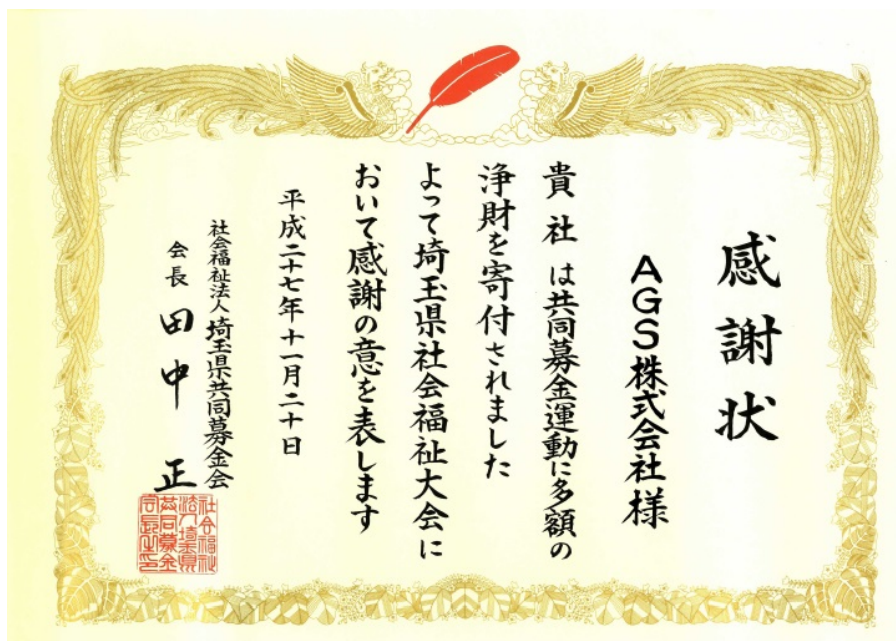 感謝状
AGS株式会社様
貴社は共同募金運動に多額の
浄財を寄付されました
よって埼玉県社会福祉大会に
おいて感謝の意を表します
平成二十七年十一月二十日
社会福祉法人埼玉県共同募金会
会長 田中正
社会福祉
法人埼玉県
共同募金
会長之印